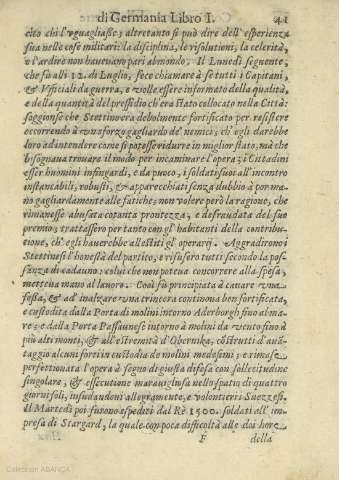 di Germania Libro I. 41
cito chi l'vguagliasse; altretanto si può dire dell'esperienza
sua nelle cose militari: la disciplina, le risolutioni, la celerità,
e l'ardire non haueuano pari al mondo. Il Lunedì seguente,
che fù alli 12. di Luglio, fece chiamare à se tutti i Capitani,
& Vfficiali da guerra, e volle essere informato della qualità,
e della quantità del presidio ch'era stato collocato nella Città:
soggionse che Stettino era debolmente fortificato per resistere
occorrendo à vn sforzo gagliardo de' nemici; ch'egli darebbe
loro ad intendere come si potesse ridurre in miglior stato, mà che
bisognaua trouare il modo per incaminare l'opera; i Cittadini
esser huomini infingardi, e da puoco, i soldati suoi all'incontro
instancabili, robusti, & apparecchiati senza dubbio à por ma-
no gagliardamente alle fatiche; non volere però la ragione, che
rimanesse abusata cotanta prontezza, e defraudata del suo
premio; trattassero per tanto con gl'habitanti della contribu-
tione, ch'egli hauerebbe allestiti gl'operarij. Aggradirono i
Stettinesi l'honestà del partito, e risposero tutti secondo la pos-
sanza di cadauno: colui che non poteua concorrere alla spesa,
metteua mano al lauoro. Così fù principiata à cauare vna
fossa, & ad inalzare vna trincera continoua ben fortificata,
e custodita dalla Porta di molini intorno Aderborgh fino al ma-
re: e dalla Porta Passaunese intorno à molini da vento fino à
più alti monti, & all'estremità d'Obernika, costrutti d'auā-
taggio alcuni forti in custodia de molini medesimi; e rimase
perfettionata l'opera à segno di giusta difesa con sollecitudine
singolare, & essecutione marauigliosa nello spatio di quattro
giorni soli, insudandoui allegramente, e volontieri i Suezzesi.
Il Martedì poi furono espediti dal Rè 1500. soldati all'im-
presa di Stargard, la quale con poca difficoltà alle doi hore
F della
Colección ABANCA